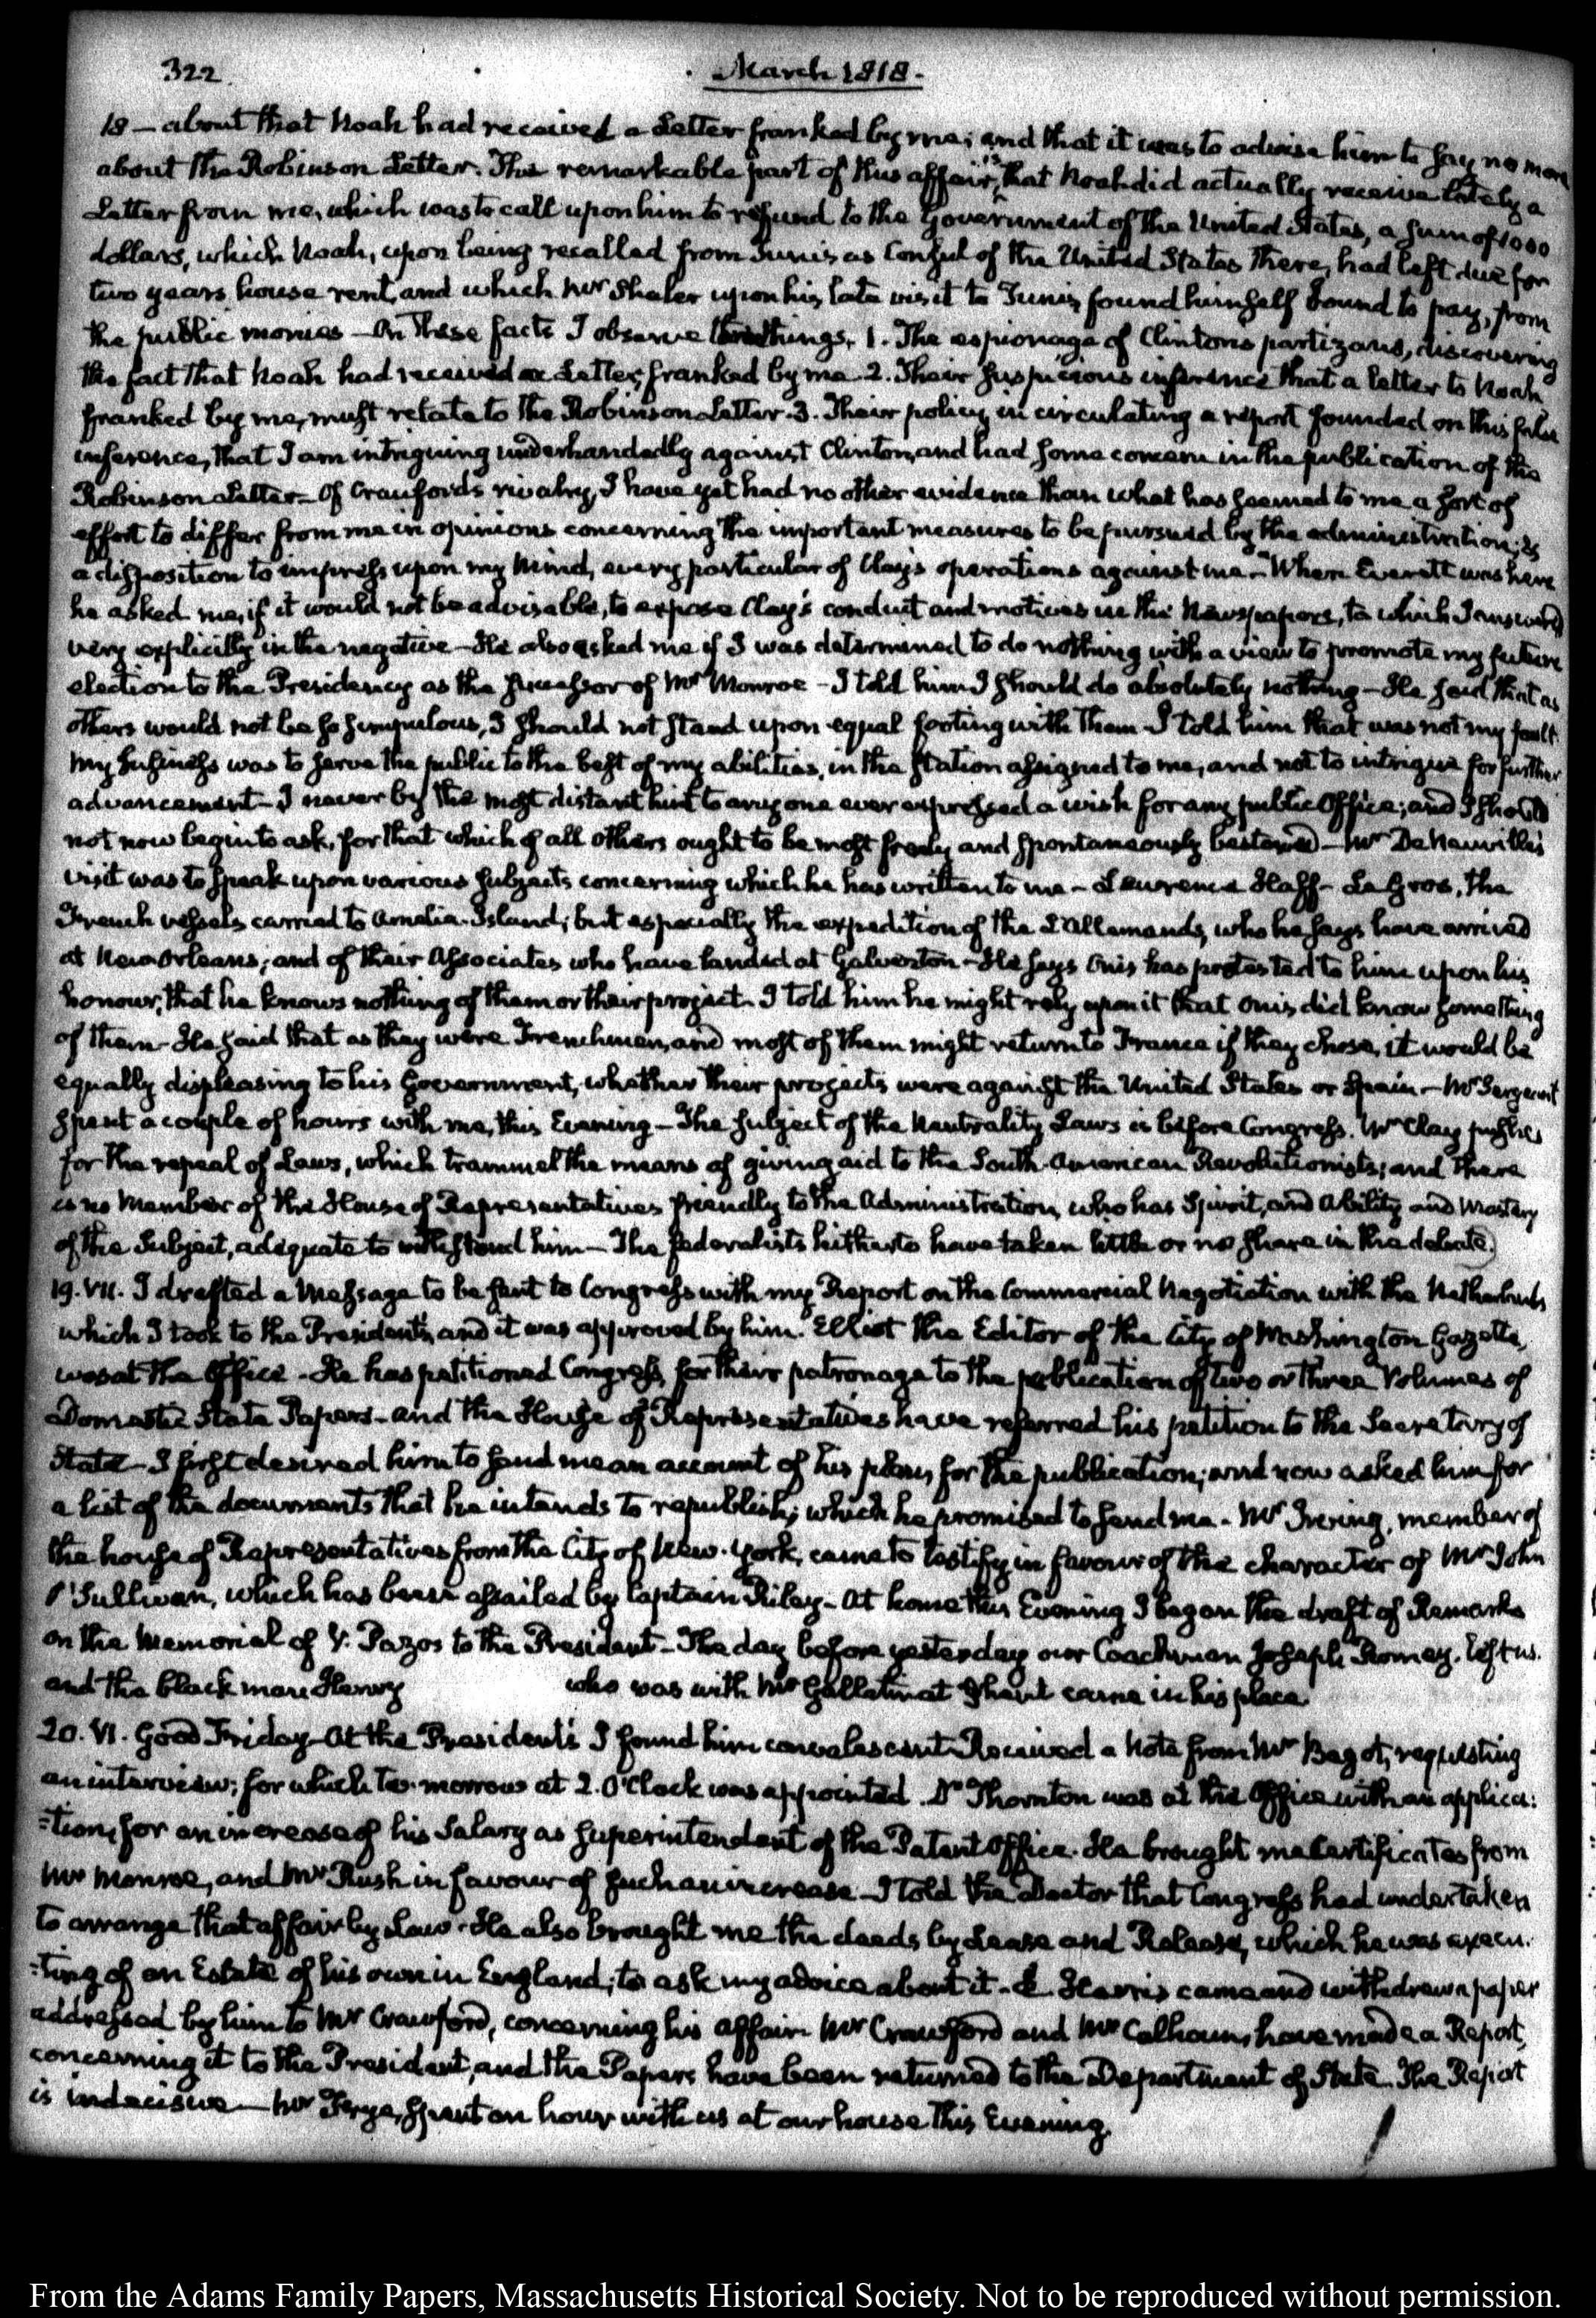 322
March 1818.
18 — about that Noah had received a Letter franked by me; and that it was to advise him to say no more
about the Robinson Letter. The remarkable part of this affair is, that Noah did actually receive lately a
Letter from me, which was to call upon him to refund to the Government of the United States, a sum of 1000
dollars, which Noah, upon being recalled from Tunis as Consul of the United States there, had left due for
two years house rent, and which Mr Shaler upon his late visit to Tunis found himself bound to pay, from
the public monies — On these facts I observe things. 1. The espionage of Clinton's partizans, discovering
the fact that Noah had received a Letter, franked by me. 2. Their suspicious inference that a letter to Noah
franked by me, must relate to the Robinson Letter. 3. Their policy in circulating a report founded on this false
inference, that I am intriguing underhandedly against Clinton, and had some concern in the publication of the
Robinson Letter — Of Crawford's rivalry, I have yet had no other evidence than what has seemed to me a sort of
effort to differ from me in opinions concerning the important measures to be pursued by the administration; &
a disposition to impress upon my Mind, every particular of Clay's operations against me — When Everett was here
he asked me, if it would not be advisable, to expose Clay's conduct and motives in the Newspapers, to which I answered
very explicitly in the negative — He also asked me if I was determined to do nothing with a view to promote my future
election to the Presidency as the successor of Mr Monroe — I told him I should do absolutely nothing — He said that as
others would not be so scrupulous, I should not stand upon equal footing with them — I told him that was not my fault.
My business was to serve the public to the best of my abilities, in the station assigned to me, and not to intrigue for further
advancement — I never by the most distant hint to any one ever expressed a wish for any public Office; and I should
not now begin to ask, for that which of all others ought to be most freely and spontaneously bestowed — Mr De Neuville's
visit was to speak upon various subjects concerning which he has written to me — Lawrence Haff — Le Gros, the
French vessels carried to Amelia-Island; but especially the expedition of the L'Allemands, who he says have arrived
at New Orleans; and of their Associates who have landed at Galveston — He says Onis has protested to him upon his
honour, that he knows nothing of them or their project. I told him he might rely upon it that Onis did know something
of them — He said that as they were Frenchmen, and most of them might return to France if they chose, it would be
equally displeasing to his Government, whether their projects were against the United States or Spain — Mr Sergeant
spent a couple of hours with me, this Evening — The subject of the Neutrality Laws is before Congress. Mr Clay pushes
for the repeal of Laws, which trammel the means of giving aid to the South-American Revolutionists; and there
is no Member of the House of Representatives friendly to the Administration, who has Spirit, and Ability and Mastery
of the Subject, adequate to withstand him — The federalists hitherto have taken little or no share in the debate.
19. VII. I drafted a Message to be sent to Congress with my Report on the Commercial Negotiation with the Netherlands
which I took to the President's, and it was approved by him. Elliot the Editor of the City of Washington Gazette,
was at the Office — He has petitioned Congress, for their patronage to the publication of two or three Volumes of
Domestic State Papers — and the House of Representatives have referred his petition to the Secretary of
State — I first desired him to send me an account of his plan, for the publication; and now asked him for
a list of the documents that he intends to republish; which he promised to send me — Mr Irving, member of
the house of Representatives from the City of New-York, came to testify in favour of the character of Mr John
O'Sullivan, which has been assailed by Captain Riley — At home this Evening I began the draft of Remarks
on the Memorial of V. Pazos to the President — The day before yesterday our Coachman Joseph Romey, left us.
and the black man Henry who was with Mr Gallatin at Ghent came in his place.
20. VI. Good Friday — At the President's I found him convalescent — Received a Note from Mr Bagot, requesting
an interview; for which to-morrow at 2. O'Clock was appointed. Dr Thornton was at the Office with an applica:
:tion, for an increase of his Salary as superintendent of the Patent Office. He brought me Certificates from
Mr Monroe, and Mr Rush in favour of such an increase — I told the Doctor that Congress had undertaken
to arrange that affair by Law — He also brought me the deeds by Lease and Release, which he was execu:
:ting of an Estate of his own in England; to ask my advice about it — Harris came and withdrew a paper
addressed by him to Mr Crawford, concerning his affair. Mr Crawford and Mr Calhoun, have made a Report,
concerning it to the President, and the Papers have been returned to the Department of State. The Report
is indecisive — Mr Frye, spent an hour with us at our house this Evening.
From the Adams Family Papers, Massachusetts Historical Society. Not to be reproduced without permission.